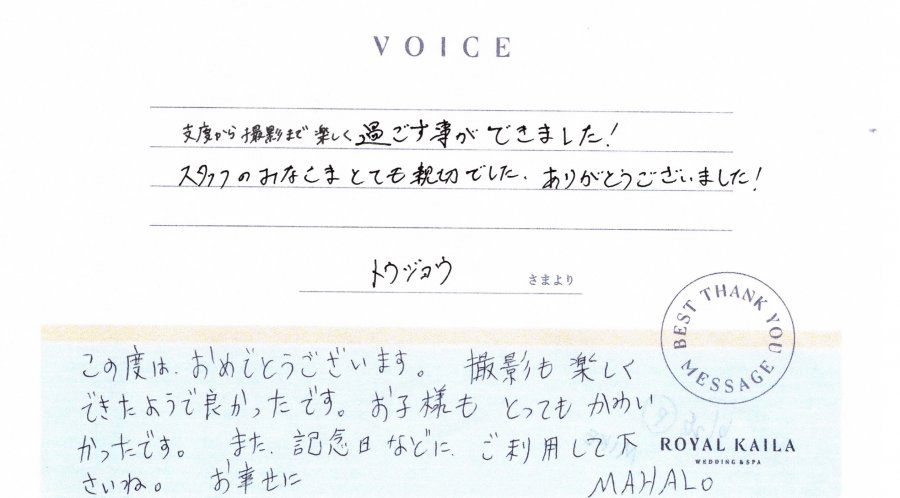 VOICE
支度から撮影まで楽しく過ごす事ができました!
スタッフのおなさまとても親切でした. ありがとうございました!
トウジョウ さまより
BEST THANK YOU MESSAGE
この度は、おめでとうございます。 撮影も楽しく
できたようで良かったです。お子様も とってもかわい
かったです。 また、記念日などに、ご利用して下
さいね。 お幸せに MAHALO
ROYAL KAILA
WEDDING & SPA